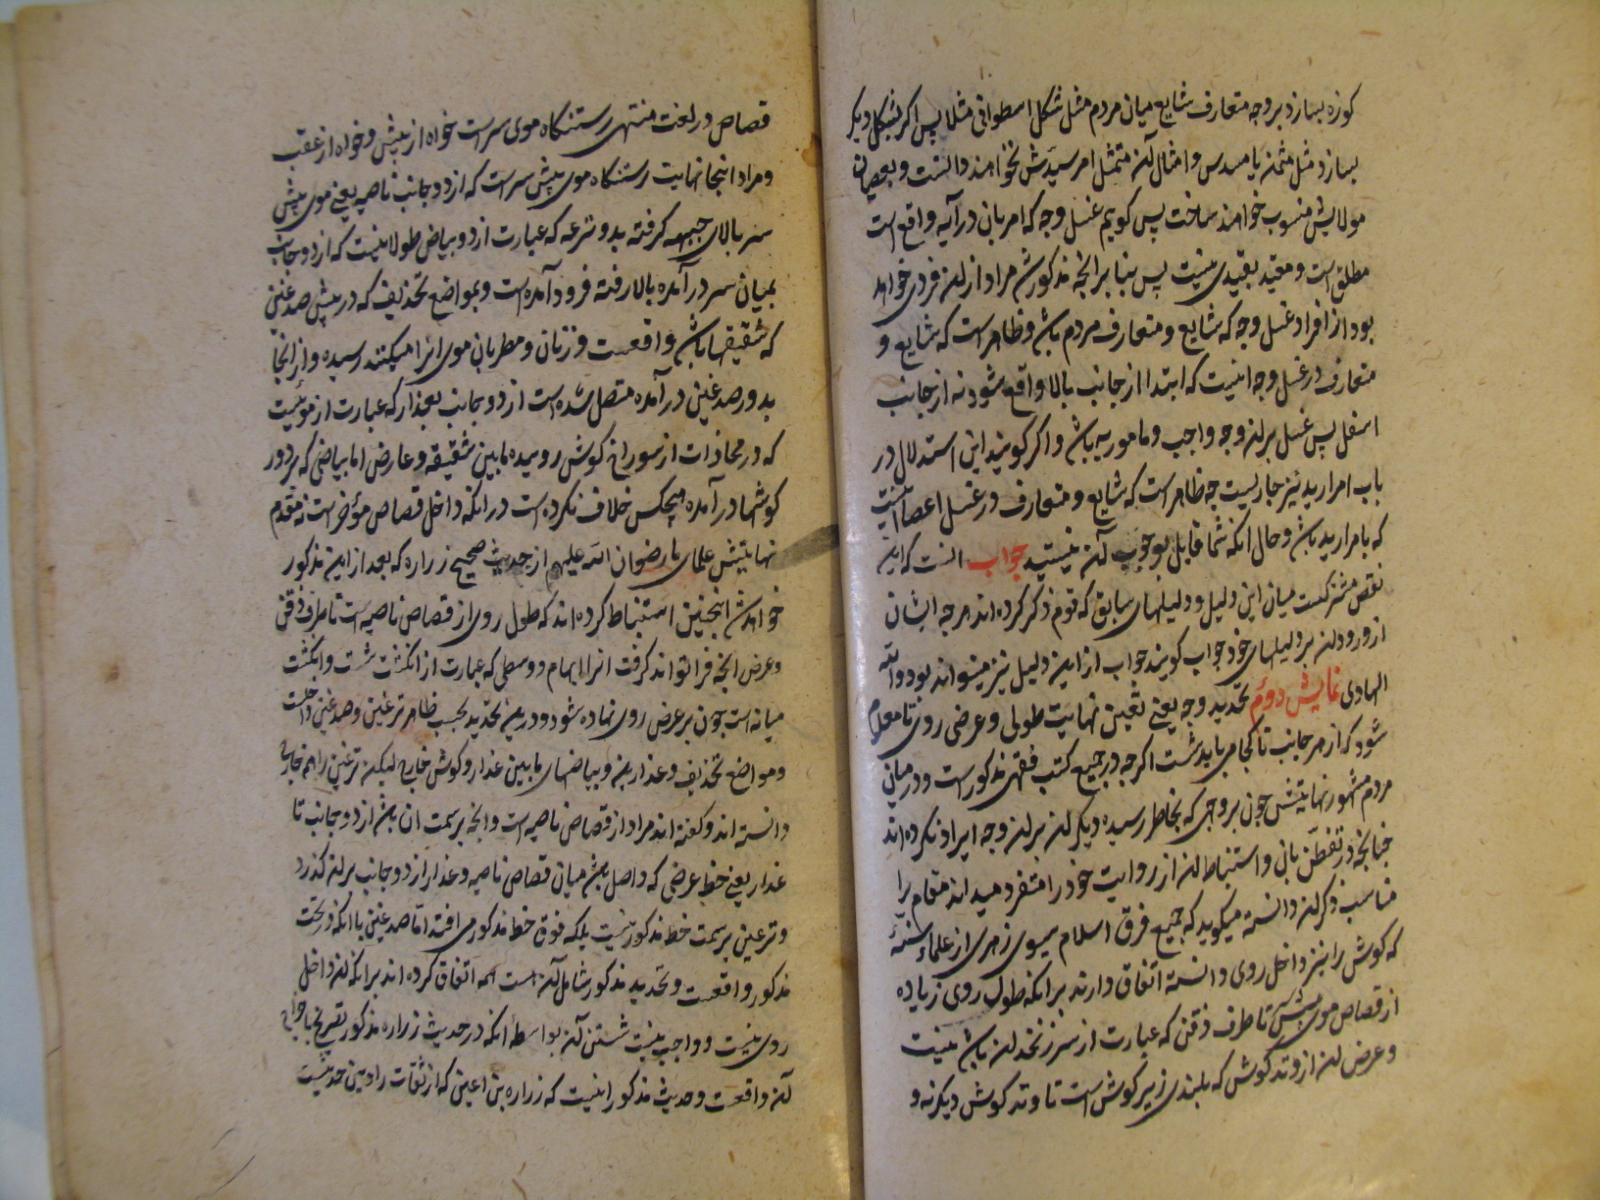 کوزه بسازد بر وجه متعارف شایع میان مردم مثل شکل اسطوانی مثلا پس اکر بشکل دیکر
بسازد مثل مثمن یا مسدس و امثال آن متمثل امر سیدش نخواهند دانست و بعصیان
مولایش منسوب خواهند ساخت پس کویم غسل وجه که امر بان در آیه واقع است
مطلق است و مقید بقیدی نیست پس بنا بر انچه مذکور شد مراد از ان فردی خواهد
بود از افراد غسل وجه که شایع و متعارف مردم باشد و ظاهر است که شایع و
متعارف در غسل وجه اینست که ابتدا از جانب بالا واقع شود نه از جانب
اسفل پس غسل بر ان وجه واجب و مامور به باشد و اکر کویند این استدلال در
باب امرار ید نیز جاریست چه ظاهر است که شایع و متعارف در غسل اعضا اینست
که بامرار ید باشد و حال انکه شما قایل بوجوب آن نیستید جواب انست که این
نقض مشترکست میان این دلیل و دلیلهای سابق که قوم ذکر کرده اند هر چه ایشان
از ورود ان بر دلیلهای خود جواب کویند جواب از این دلیل نیز میتواند بود والله
الهادی نمایش دوم تحدید وجه یعنی تعیین نهایت طولی و عرضی روی تا معلوم
شود که از هر جانب تا کجا می باید شست اکرچه در جمیع کتب فقهی مذکور است و در میان
مردم مشهور نهایتش چون بر وجهی که بخاطر رسیده دیکران بر ان وجه ایراد نکرده اند
چنانچه در تفطن بان و استنباط ان از روایت خود را متفرد میداند مقام را
مناسب ذکر ان دانسته میکوید که جمیع فرق اسلام سوی زهری از علماء سنت
که کوش را نیز داخل روی دانسته اتفاق دارند بر انکه طول روی زیاده
از قصاص موی پیش تا طرف ذقن که عبارت از سر زنخدان باشد نیست
و عرض ان از وتد کوش که بلندی زیر کوش است تا وتد کوش دیکر نه و
قصاص در لغت منتهی رستنکاه موی سر است خواه از پیش و خواه از عقب
و مراد اینجا نهایت رستنکاه موی پیش سر است که از دو جانب ناصیه یعنی موی پیش
سر بالای جبهه کرفته بدو نزعه که عبارت از دو بیاض طولانیست که از دو جانب
بمیان سر در آمده بالا رفته فرود آمده است و بمواضع تحذیف که در پیش صدغین
که شقیقها باشد واقعست و زنان و مطربان موی انرا میکنند رسیده و از انجا
بدور صدغین در آمده متصل شده است از دو جانب بعذار که عبارت از موئیست
که در محاذات از سوراخ کوش روییده ما بین شقیقه و عارض اما بیاضی که بر دور
کوشها در آمده هیچکس خلاف نکرده است در انکه داخل قصاص مؤخر است نه مقدم
نهایتش علمای ما رضوان الله علیهم از حدیث صحیح زراره که بعد از این مذکور
خواهد شد اینچنین استنباط کرده اند که طول روی از قصاص ناصیه است تا طرف ذقن
و عرض انچه فرا تواند کرفت انرا ابهام و وسطی که عبارت از انکشت شست و انکشت
میانه است چون بر عرض روی نهاده شود و در این تحدید بحسب ظاهر نزعتین و صدغین داخلست
و مواضع تحذیف و عذارین و بیاضهای ما بین عذار و کوش خارج لیکن نزعتین را هم خارج
دانسته اند و کفته اند مراد از قصاص ناصیه است و انچه بر سمت ان باشد از دو جانب تا
عذار یعنی خط عرضی که واصل باشد میان قصاص ناصیه و عذار از دو جانب بر ان کذرد
و نزعتین بر سمت خط مذکور نیست بلکه فوق خط مذکور می افتد اما صدغین با انکه در تحت
مذکور واقعست و تحدید مذکور شامل آن است همه اتفاق کرده اند بر انکه ان داخل
روی نیست و واجب نیست شستن آن بواسطه انکه در حدیث زراره مذکور تصریح باخراج
آن واقعست و حدیث مذکور اینست که زراره بن اعین که از ثقات راویین حدیثست